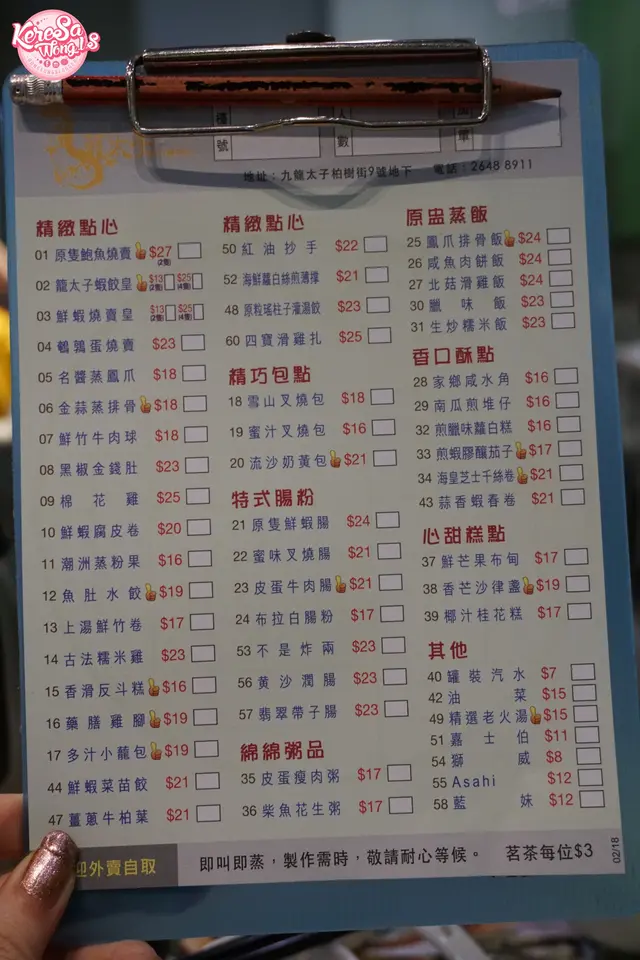 KereSa
Wong's
號
數
單
地址：九龍太子柏樹街9號地下 電話：2648 8911
精緻點心
01 原隻鮑魚燒賣 $27 (2隻)
02 龍太子蝦餃皇 $13 (2隻) $25 (4隻)
03 鮮蝦燒賣皇 $13 (2隻) $25 (4隻)
04 鵪鶉蛋燒賣 $23
05 名醬蒸鳳爪 $18
06 金蒜蒸排骨 $18
07 鮮竹牛肉球 $18
08 黑椒金錢肚 $23
09 棉花雞 $25
10 鮮蝦腐皮卷 $20
11 潮洲蒸粉果 $16
12 魚肚水餃 $19
13 上湯鮮竹卷 $17
14 古法糯米雞 $23
15 香滑反斗糕 $16
16 藥膳雞腳 $19
17 多汁小籠包 $19
44 鮮蝦菜苗餃 $21
47 薑蔥牛柏葉 $21
精緻點心
50 紅油抄手 $22
52 海鮮蘿白絲煎薄撐 $21
48 原粒瑤柱子灌湯餃 $23
60 四寶滑雞扎 $25
精巧包點
18 雪山叉燒包 $18
19 蜜汁叉燒包 $16
20 流沙奶黃包 $21
特式腸粉
21 原隻鮮蝦腸 $24
22 蜜味叉燒腸 $21
23 皮蛋牛肉腸 $21
24 布拉白腸粉 $17
53 不是炸兩 $23
56 黄沙潤腸 $23
57 翡翠帶子腸 $23
綿綿粥品
35 皮蛋瘦肉粥 $17
36 柴魚花生粥 $17
原盅蒸飯
25 鳳爪排骨飯 $24
26 咸魚肉餅飯 $24
27 北菇滑雞飯 $24
30 臘味飯 $23
31 生炒糯米飯 $23
香口酥點
28 家鄉咸水角 $16
29 南瓜煎堆仔 $16
32 煎臘味蘿白糕 $16
33 煎蝦膠釀茄子 $17
34 海皇芝士千絲卷 $21
43 蒜香蝦春卷 $21
心甜糕點
37 鮮芒果布甸 $17
38 香芒沙律盞 $19
39 椰汁桂花糕 $17
其他
40 罐裝汽水 $7
42 油菜 $15
49 精選老火湯 $15
51 嘉士伯 $11
54 獅威 $8
55 Asahi $12
58 藍妹 $12
迎外賣自取
即叫即蒸，製作需時，敬請耐心等候。 茗茶每位$3
02/18